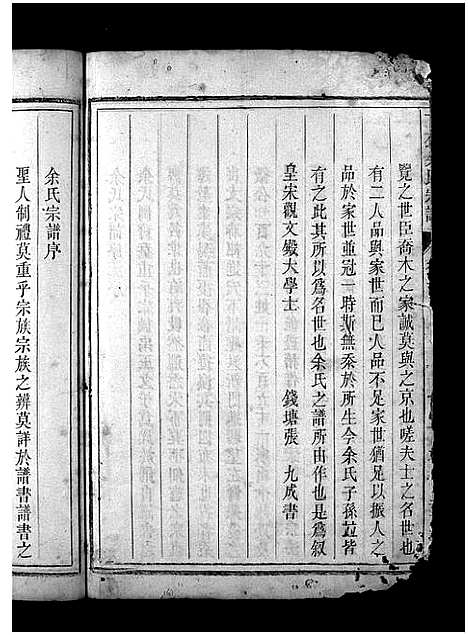 覽之世臣喬木之家誠莫與之京也嗟夫士之名世也
有二人品與家世而已人品不足家世猶足以振人之
品於家世並冠一時斯無忝於所生今余氏子孫竝皆
有之此其所以爲名世也余氏之譜所由作也是爲叙
皇宋觀文殿大學士 錢塘張 九成書
余氏宗譜序
聖人制禮莫重乎宗族宗族之辨莫詳於譜書譜書之